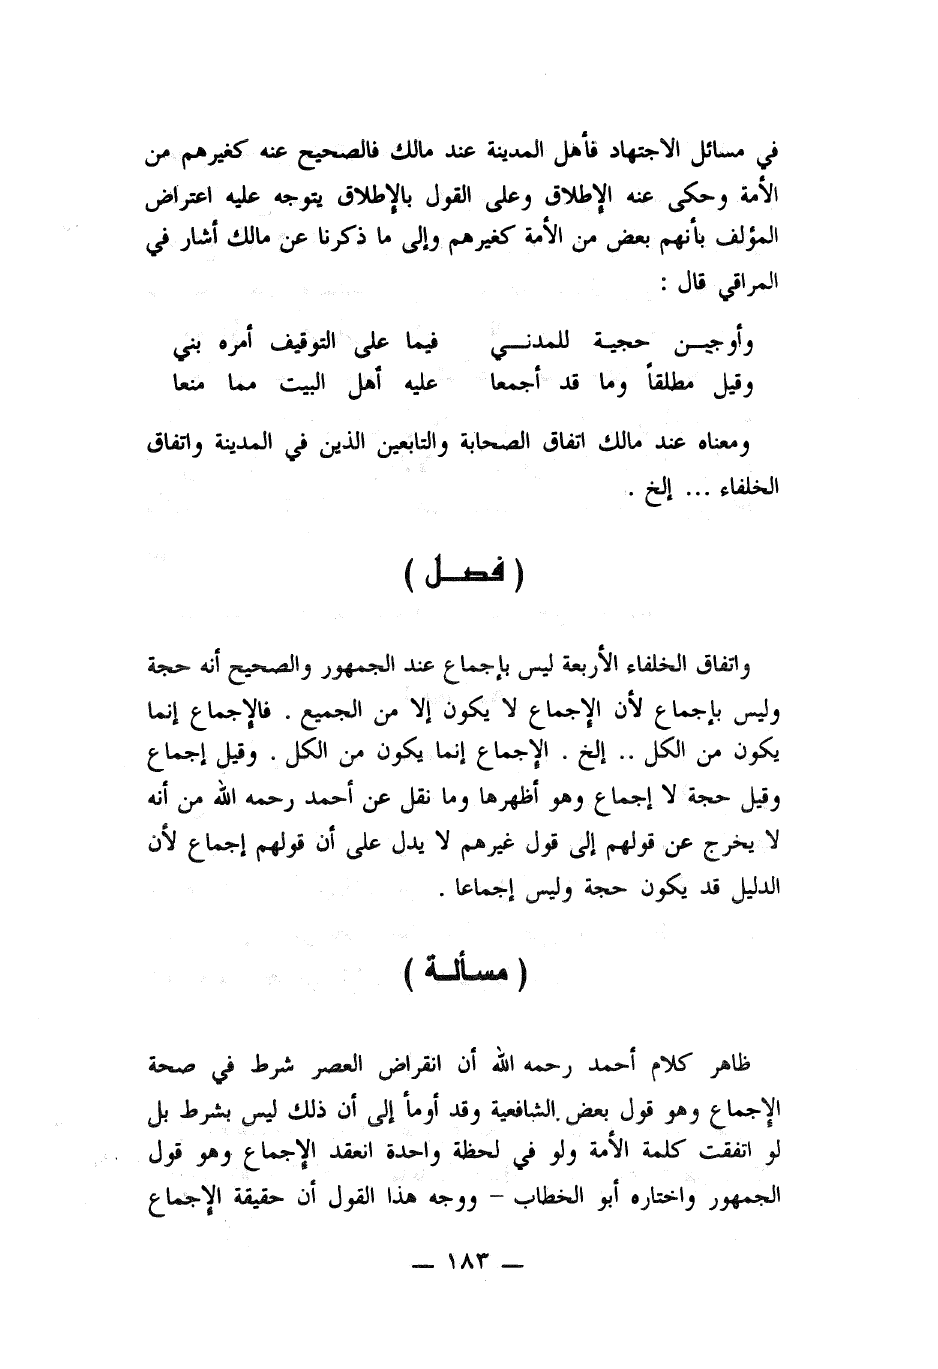 في مسائل الاجتهاد فأهل المدينة عند مالك فالصحيح عنه كغيرهم من
الأمة وحكى عنه الإطلاق وعلى القول بالإطلاق يتوجه عليه اعتراض
المؤلف بأنهم بعض من الأمة كغيرهم وإلى ما ذكرنا عن مالك أشار في
المراقي قال :
وأوجبـن حجيـة للمدنـي فيما على التوقيف أمره بني
وقيل مطلقاً وما قد أجمعا عليه أهل البيت مما منعا
ومعناه عند مالك اتفاق الصحابة والتابعين الذين في المدينة واتفاق
الخلفاء ... إلخ .
( فصـل )
واتفاق الخلفاء الأربعة ليس بإجماع عند الجمهور والصحيح أنه حجة
وليس بإجماع لأن الإجماع لا يكون إلا من الجميع . فالإجماع إنما
يكون من الكل .. إلخ . الإجماع إنما يكون من الكل . وقيل إجماع
وقيل حجة لا إجماع وهو أظهرها وما نقل عن أحمد رحمه الله من أنه
لا يخرج عن قولهم إلى قول غيرهم لا يدل على أن قولهم إجماع لأن
الدليل قد يكون حجة وليس إجماعا .
( مسألـة )
ظاهر كلام أحمد رحمه الله أن انقراض العصر شرط في صحة
الإجماع وهو قول بعض الشافعية وقد أومأ إلى أن ذلك ليس بشرط بل
لو اتفقت كلمة الأمة ولو في لحظة واحدة انعقد الإجماع وهو قول
الجمهور واختاره أبو الخطاب – ووجه هذا القول أن حقيقة الإجماع
— ١٨٣ —